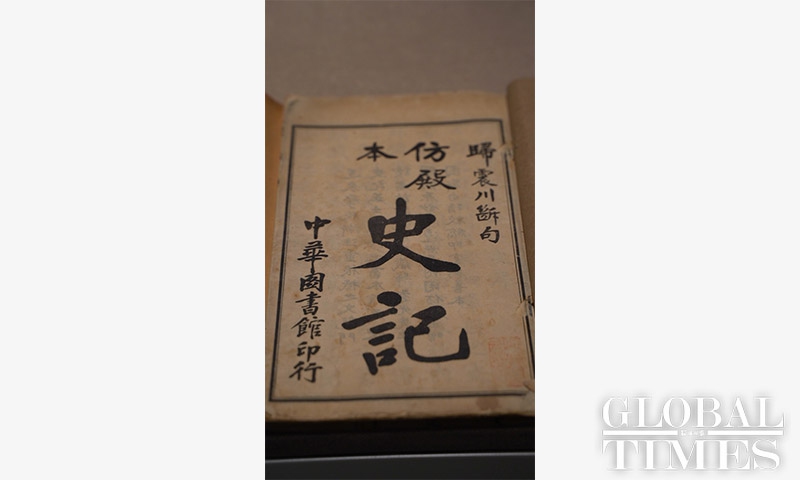 歸震川斷句
仿殿本
史記
中華圖書館印行
GLOBAL
TIMES